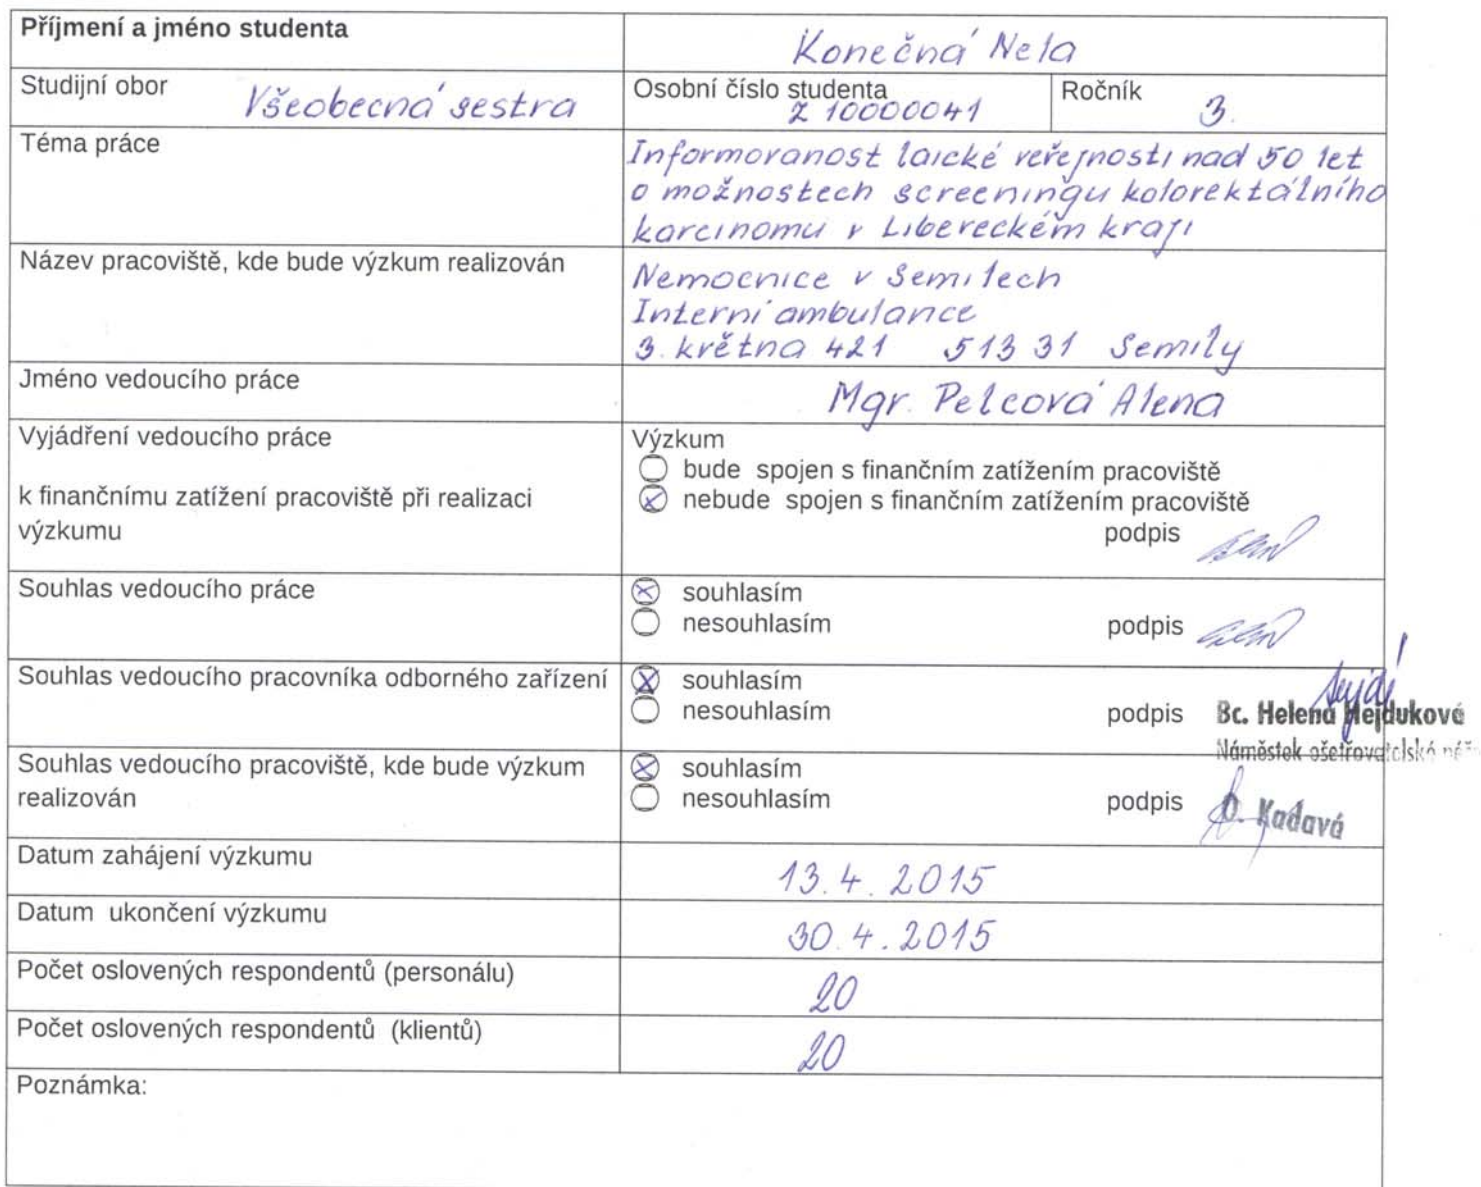 Příjmení a jméno studenta
Konečná Nela
Studijní obor
Všeobecná sestra
Osobní číslo studenta
Z 10000041
Ročník
3.
Téma práce
Informovanost laické veřejnosti nad 50 let
o možnostech screeningu kolorektálního
karcinomu v Libereckém kraji
Název pracoviště, kde bude výzkum realizován
Nemocnice v Semilech
Interní ambulance
3. května 421 513 31 Semily
Jméno vedoucího práce
Mgr. Pelcová Alena
Vyjádření vedoucího práce
k finančnímu zatížení pracoviště při realizaci
výzkumu
Výzkum
bude spojen s finančním zatížením pracoviště
nebude spojen s finančním zatížením pracoviště
podpis
Souhlas vedoucího práce
souhlasím
nesouhlasím
podpis
Souhlas vedoucího pracovníka odborného zařízení
souhlasím
nesouhlasím
podpis
Bc. Helena Hejduková
Náměstek ošetřovatelské
Souhlas vedoucího pracoviště, kde bude výzkum
realizován
souhlasím
nesouhlasím
podpis
Kadavá
Datum zahájení výzkumu
13.4.2015
Datum ukončení výzkumu
30.4.2015
Počet oslovených respondentů (personálu)
20
Počet oslovených respondentů (klientů)
20
Poznámka: